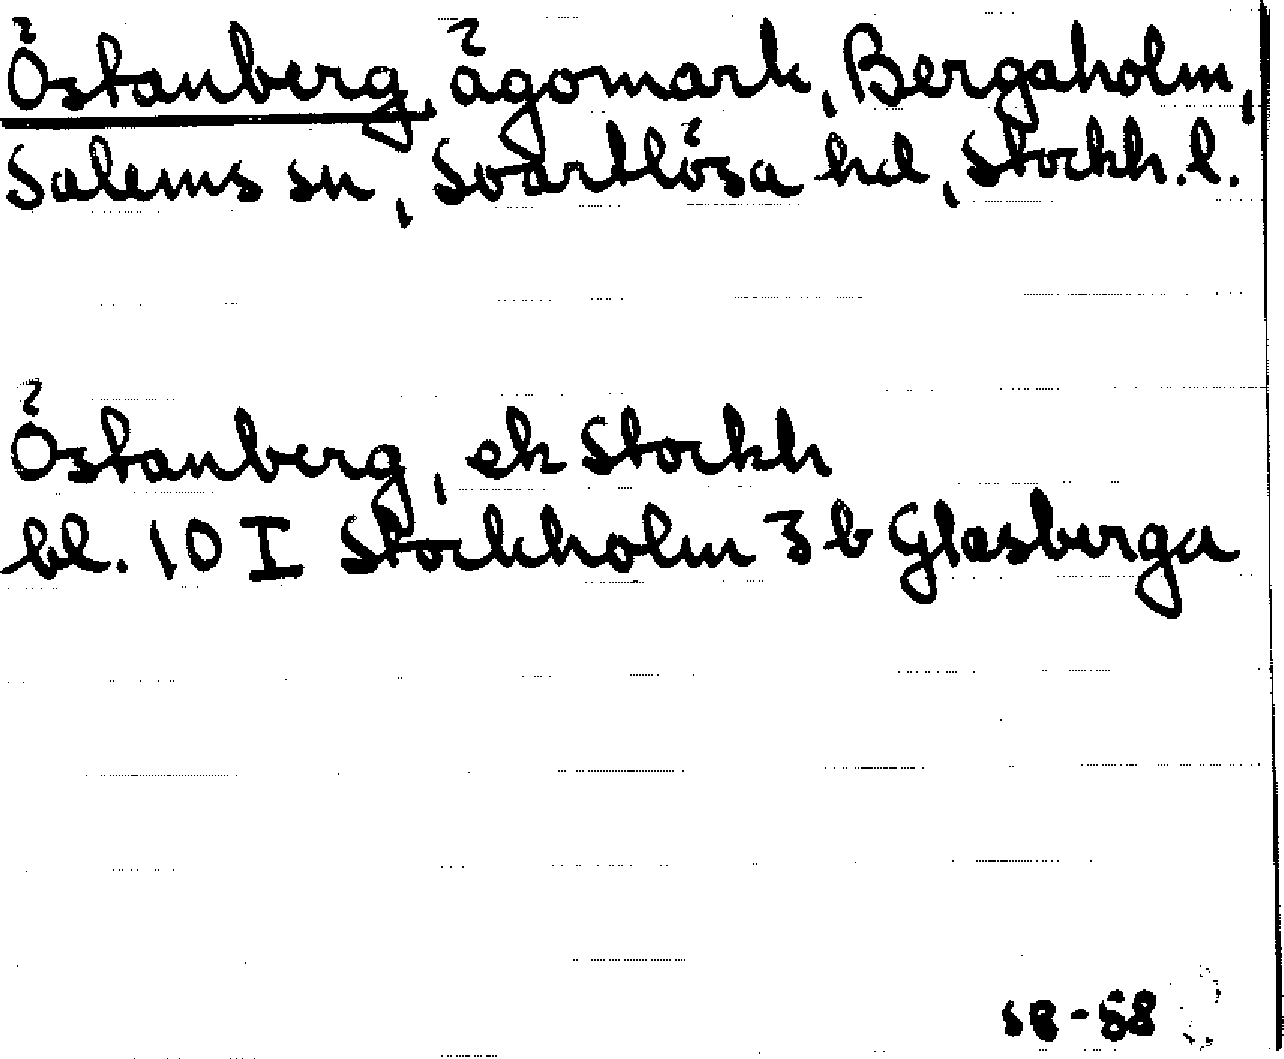 Östanberg, ägomark, Bergaholm,
Salems sn, Svartlösa hd, Stockh.l.
Östanberg, ek Stockh
bl. 10 I Stockholm 3 b Glasberga